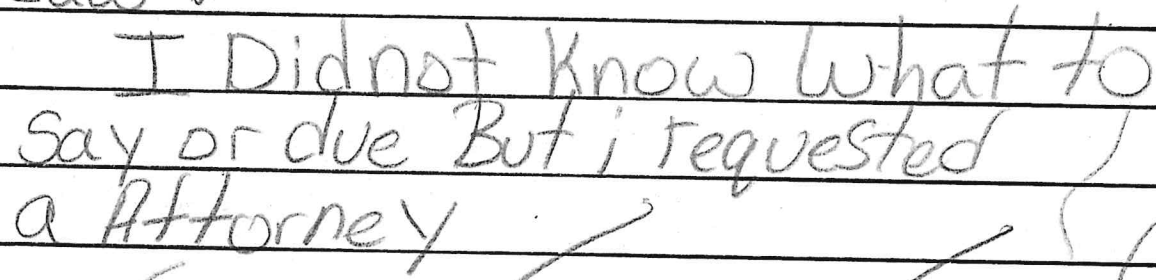 I Didnot Know What to
say or due But i requested
a Attorney